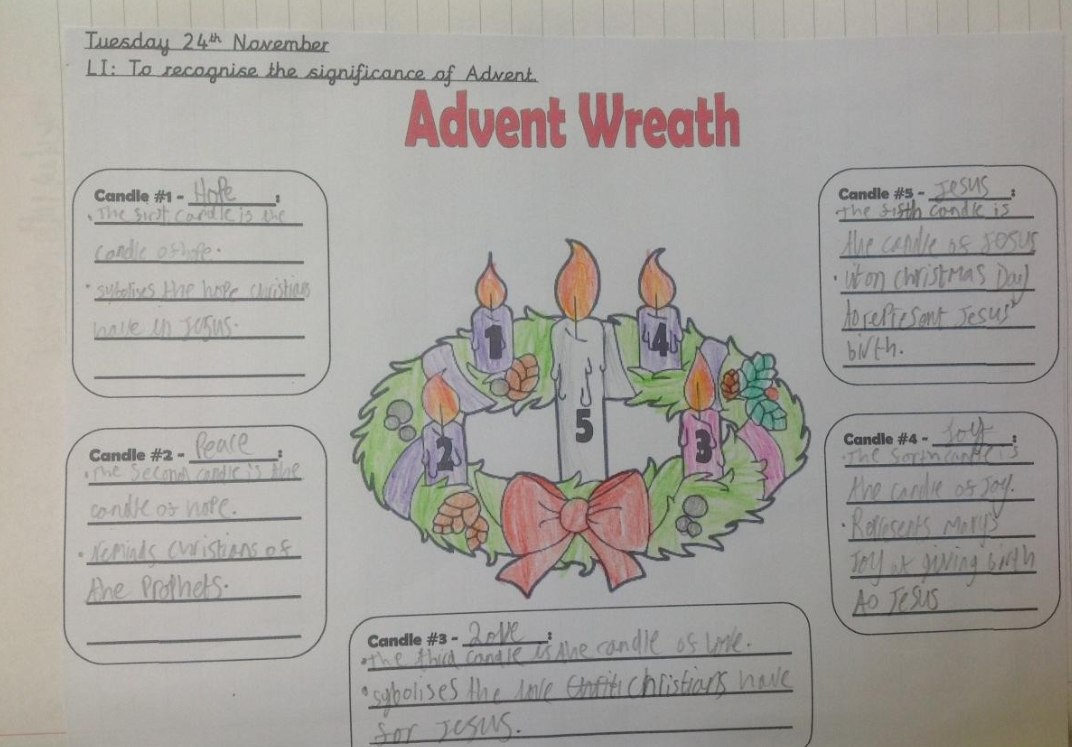 Tuesday 24th November
LI: To recognise the significance of Advent.
Advent Wreath
Candle #1 - Hope :
• The first candle is the
candle of hope.
• sybolises the hope christians
have in JeSus.
Candle #2 - Peace :
• The Second candle is the
candle of hope.
• reminds christians of
the Prophets.
Candle #3 - Love :
• The third candle is the candle of love.
• sybolises the love christians have
for Jesus.
Candle #5 - Jesus :
The fifth candle is
the candle of JESUS
• lit on christmas Day
to represent Jesus'
birth.
Candle #4 - Joy :
• The candle is
the candle of Joy.
• Represents Marys
Joy at giving birth
to Jesus
1
2
3
4
5